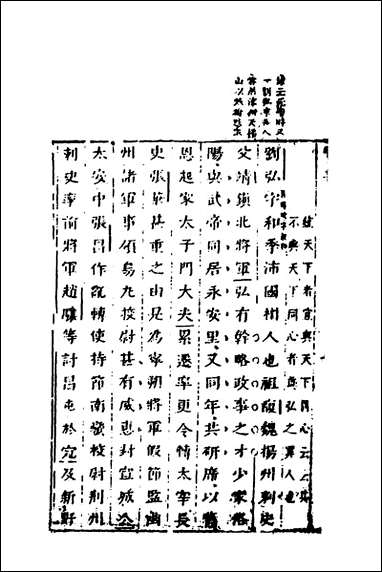 天下者宜與天下同心云云其
不與天下同心者與弘之異人也
劉弘字和季沛國相人也祖馥魏揚州刺史
父靖鎮北將軍弘有幹略政事之才少家洛
陽與武帝同居永安里又同年共研席以舊
恩起家太子門大夫累遷率更令轉太宰長
史張華甚重之由是為寧朔將軍假節監幽
州諸軍事領烏丸校尉甚有威惠封宣城公
太安中張昌作亂轉使持節南蠻校尉荊州
刺史率前將軍趙驤等討昌屯於宛及新野